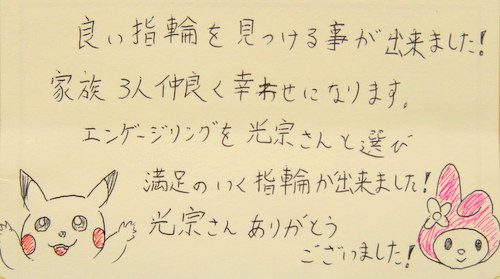 良い指輪を見つける事が出来ました!
家族3人仲良く幸わせになります。
エンゲージリングを光宗さんと選び
満足のいく指輪が出来ました!
光宗さんありがとう
ございました!